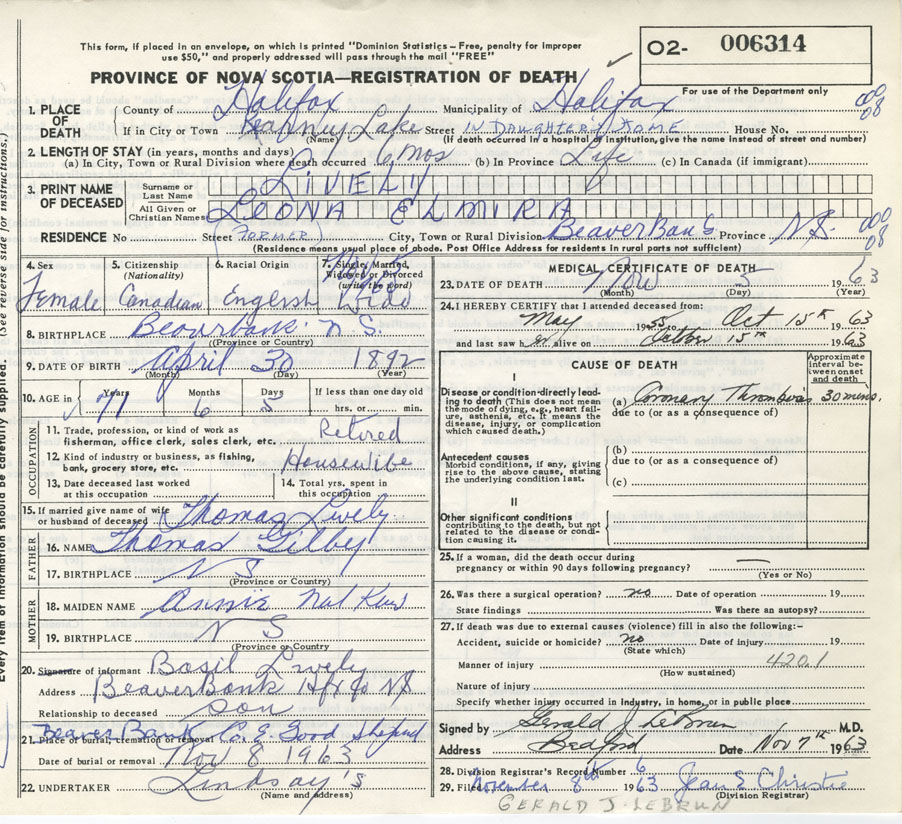 This form, if placed in an envelope, on which is printed "Dominion Statistics—Free, penalty for improper
use $50," and properly addressed will pass through the mail "FREE"
O2- 006314
PROVINCE OF NOVA SCOTIA—REGISTRATION OF DEATH
For use of the Department only
1. PLACE OF DEATH
County of Halifax Municipality of Halifax
If in City or Town Kearney Lake Street IN DAUGHTER'S HOME House No.
(Name) (If death occurred in a hospital or institution, give the name instead of street and number)
2. LENGTH OF STAY (in years, months and days)
(a) In City, Town or Rural Division where death occurred 6 mos (b) In Province Life (c) In Canada (if immigrant)
3. PRINT NAME OF DECEASED
Surname or Last Name LIVELY
All Given or Christian Names LEONA ELMIRA
RESIDENCE No Street (FORMER) City, Town or Rural Division BeaverBank Province N.S.
(Residence means usual place of abode. Post Office Address for residents in rural parts not sufficient)
4. Sex Female
5. Citizenship (Nationality) Canadian
6. Racial Origin English
7. Single, Married, Widowed or Divorced (write the word)
8. BIRTHPLACE Beaverbank N.S.
(Province or Country)
9. DATE OF BIRTH April 30 1892
(Month) (Day) (Year)
10. AGE in Years 71 Months 6 Days 5 If less than one day old hrs. or min.
OCCUPATION
11. Trade, profession, or kind of work as fisherman, office clerk, sales clerk, etc. Retired
12. Kind of industry or business, as fishing, bank, grocery store, etc. Housewife
13. Date deceased last worked at this occupation
14. Total yrs. spent in this occupation
15. If married give name of wife or husband of deceased Thomas Lively
FATHER
16. NAME Thomas Gilby
17. BIRTHPLACE N S
(Province or Country)
MOTHER
18. MAIDEN NAME Annie Not Know
19. BIRTHPLACE N S
(Province or Country)
20. Signature of informant Basil Lively
Address BeaverBank Hfx Co NS
Relationship to deceased son
21. Place of burial, cremation or removal Beaver Bank Co. E. Good Shepherd
Date of burial or removal Nov 8 1963
22. UNDERTAKER Lindsay's
(Name and address)
MEDICAL CERTIFICATE OF DEATH
23. DATE OF DEATH Nov 5 1963
(Month) (Day) (Year)
24. I HEREBY CERTIFY that I attended deceased from:
May 1955 to Oct 15th 1963
and last saw her alive on October 15th 1963
CAUSE OF DEATH
Approximate interval between onset and death
I
Disease or condition directly leading to death (This does not mean the mode of dying, e.g., heart failure, asthenia, etc. It means the disease, injury, or complication which caused death.)
(a) Coronary Thrombosis 30 mins.
due to (or as a consequence of)
Antecedent causes
Morbid conditions, if any, giving rise to the above cause, stating the underlying condition last.
(b)
due to (or as a consequence of)
(c)
II
Other significant conditions
contributing to the death, but not related to the disease or condition causing it.
25. If a woman, did the death occur during
pregnancy or within 90 days following pregnancy? —
(Yes or No)
26. Was there a surgical operation? no Date of operation 19
State findings Was there an autopsy?
27. If death was due to external causes (violence) fill in also the following:-
Accident, suicide or homicide? no Date of injury 19
(State which)
Manner of injury 420.1
(How sustained)
Nature of injury
Specify whether injury occurred in industry, in home, or in public place
Signed by Gerald J. LeBrun M.D.
Address Bedford Date Nov 7th 1963
28. Division Registrar's Record Number 6
29. Filed November 8th 1963 Jean E Christie
(Division Registrar)
GERALD J. LEBRUN
(See reverse side for instructions.)
Every item of information should be carefully supplied.